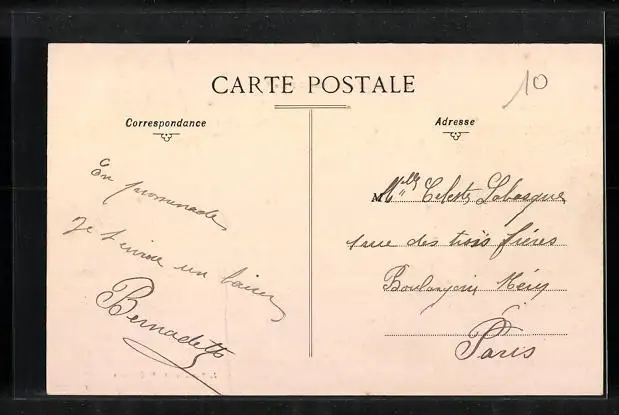 CARTE POSTALE
10
Correspondance
Adresse
En promenade
Je t'envoie un baiser
Bernadette
Melle Celeste Labasque
rue des trois frères
Boulangerie Méry
Paris